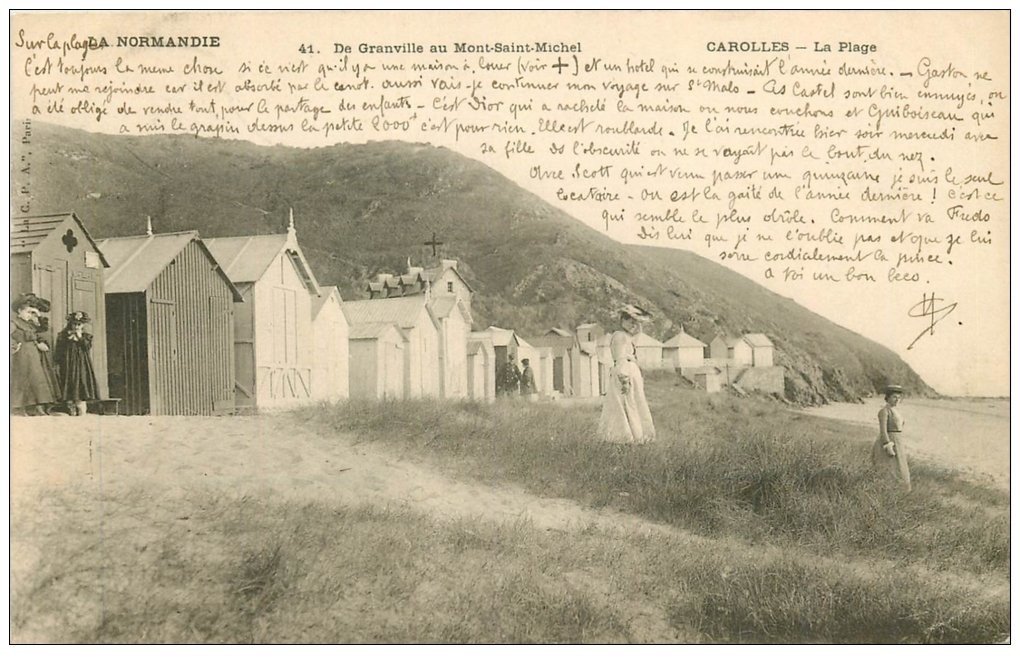 Sur la plage
LA NORMANDIE
41. De Granville au Mont-Saint-Michel
CAROLLES — La Plage
C'est toujours la meme chose si ce n'est qu'il y a une maison à louer (voir +) et un hotel qui se construisait l'année dernière. — Gaston ne
peut me rejoindre car il est absorbé par le canot. aussi vais-je continuer mon voyage sur St Malo — Les Castel sont bien ennuyés, on
a été obligé de vendre tout, pour le partage des enfants — C'est Dior qui a racheté la maison ou nous couchons et Guiboiseau qui
a mis le grapin dessus la petite 2000f c'est pour rien. Elle est roublarde. Je l'ai rencontrée hier soir mercredi avec
sa fille ds l'obscurité on ne se voyait pas le bout du nez.
Avec Scott qui est venu passer une quinzaine je suis le seul
locataire — Ou est la gaité de l'année dernière ! C'est ce
qui semble le plus drôle. Comment va Fredo
Dis lui que je ne l'oublie pas et que je lui
serre cordialement la pince.
A toi un bon beco.
"A. P. C.
Paris